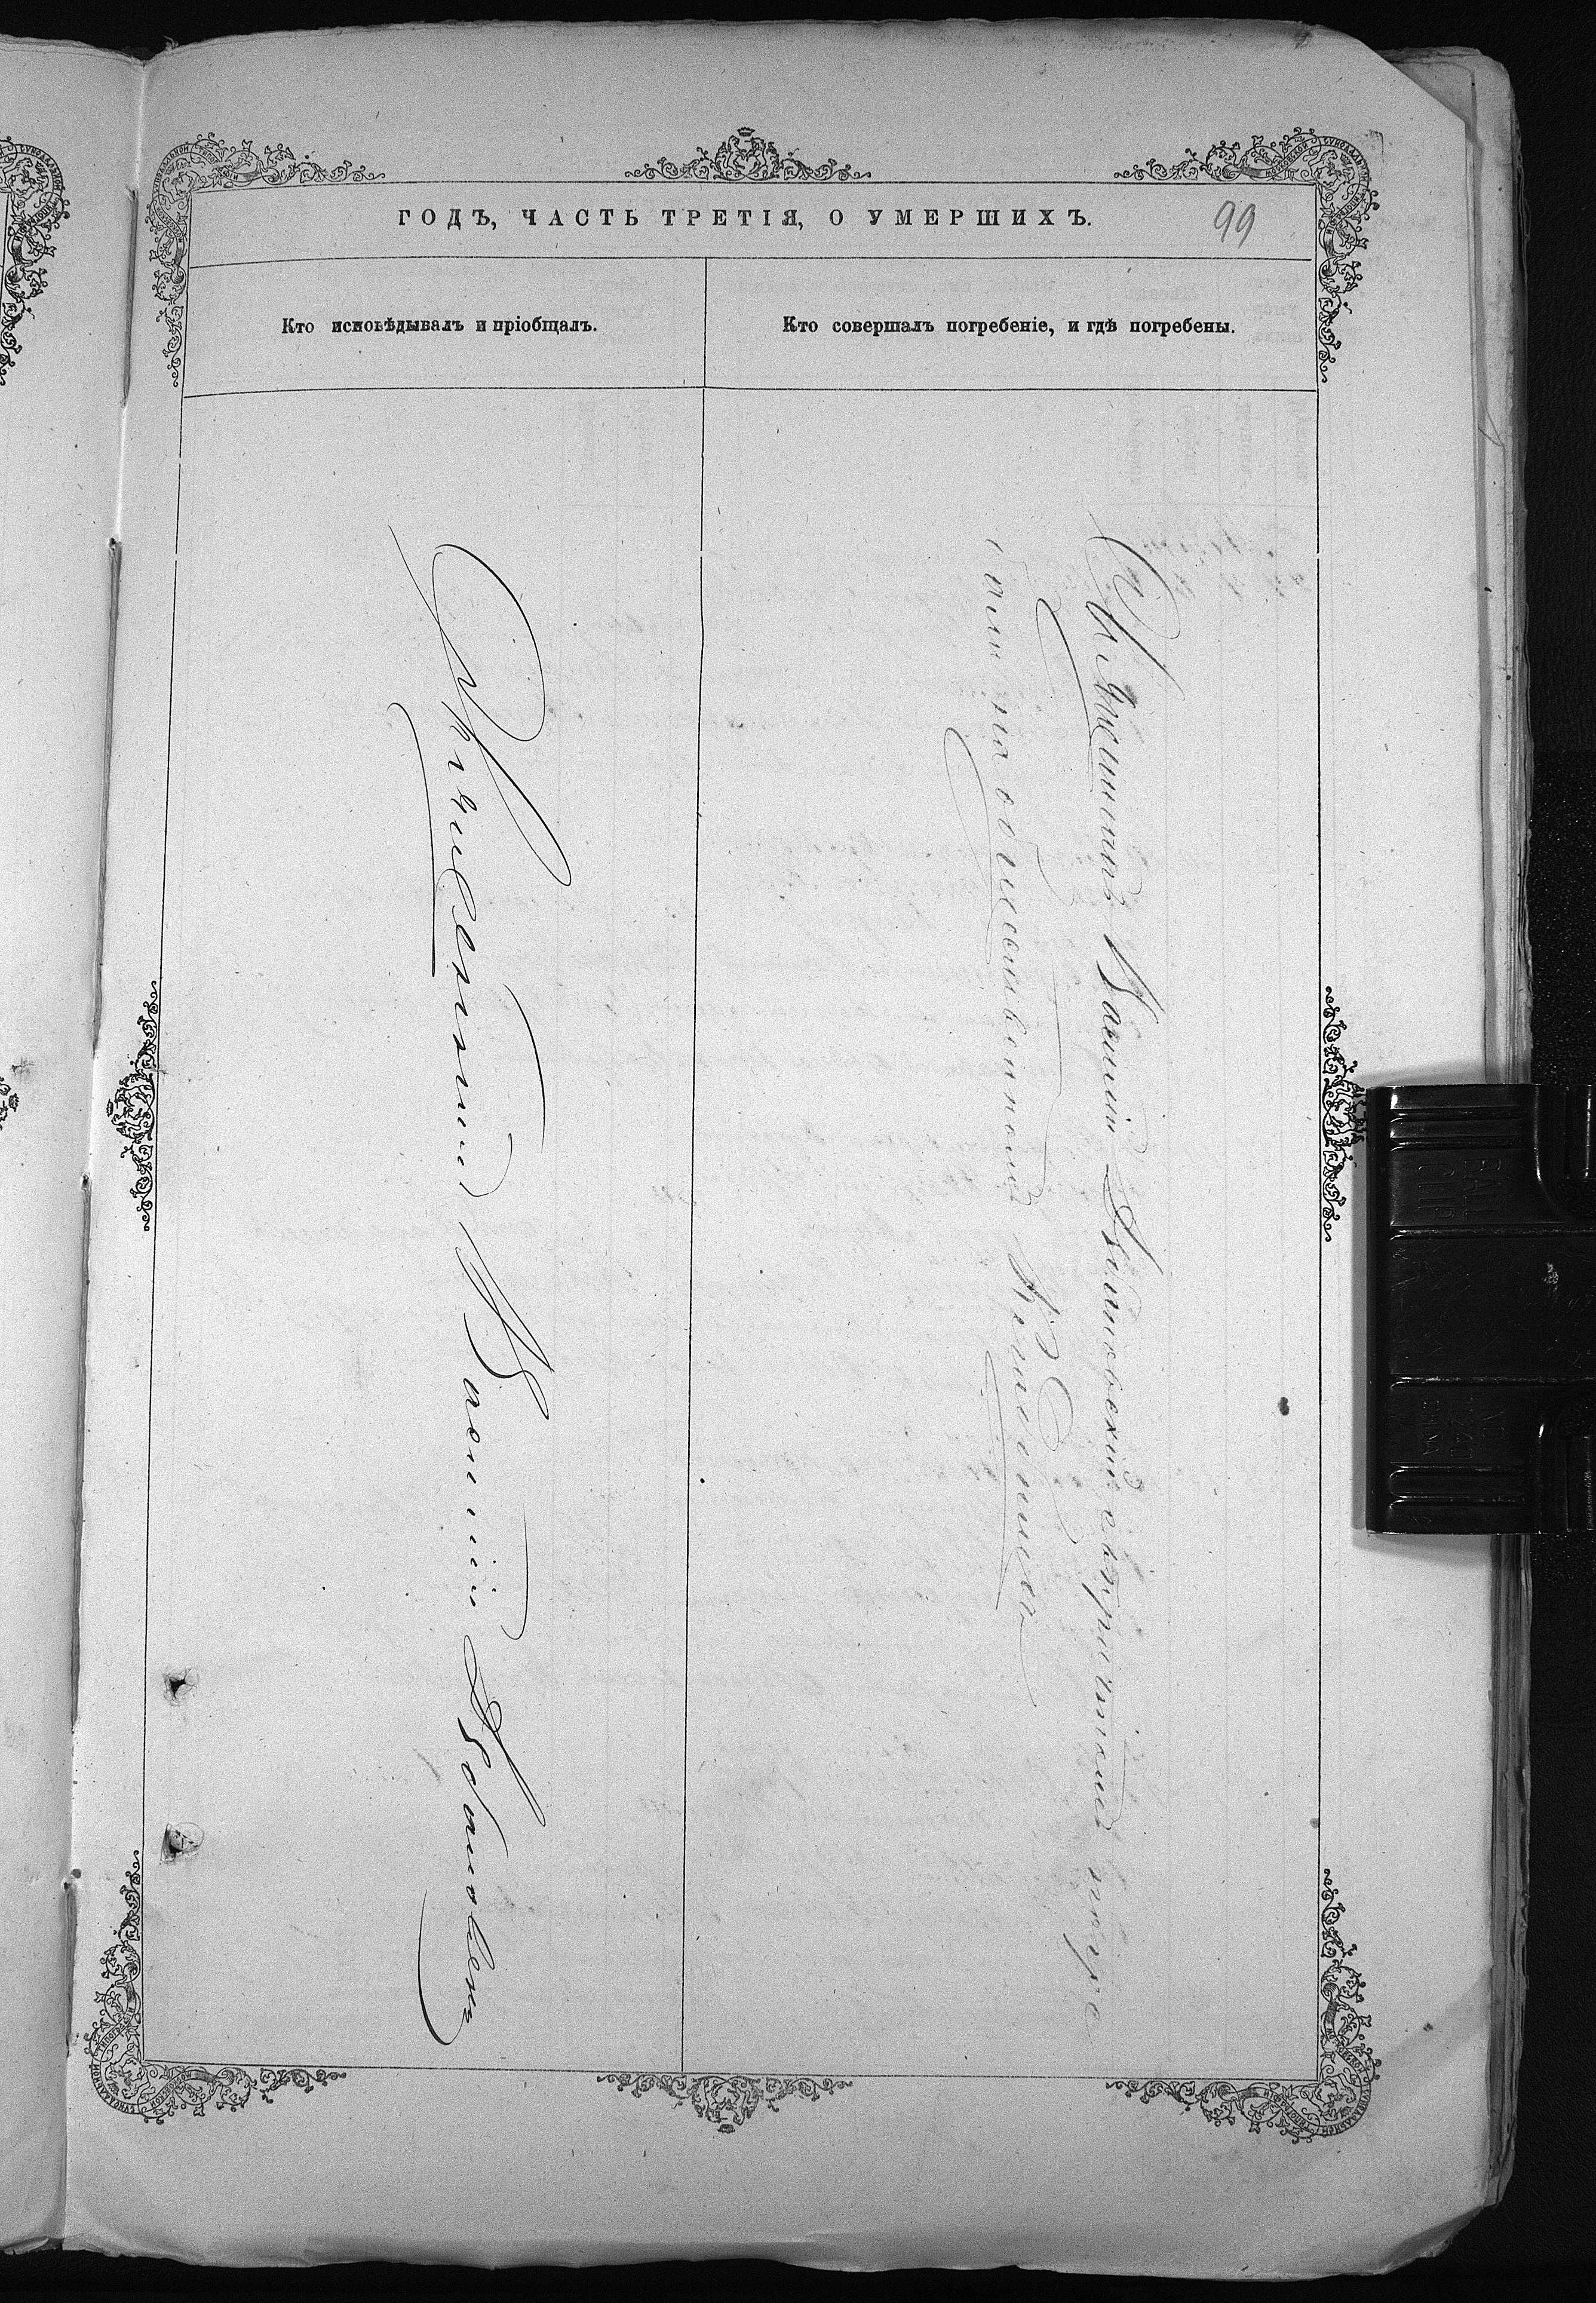 ГОДЪ, ЧАСТЬ ТРЕТІЯ, О УМЕРШИХЪ.
99
Кто исповѣдывалъ и пріобщалъ.
Кто совершалъ погребеніе, и гдѣ погребены.
Священникъ Василій
Священникъ Василій съ причтомъ погре
бали на общественномъ кладбищѣ